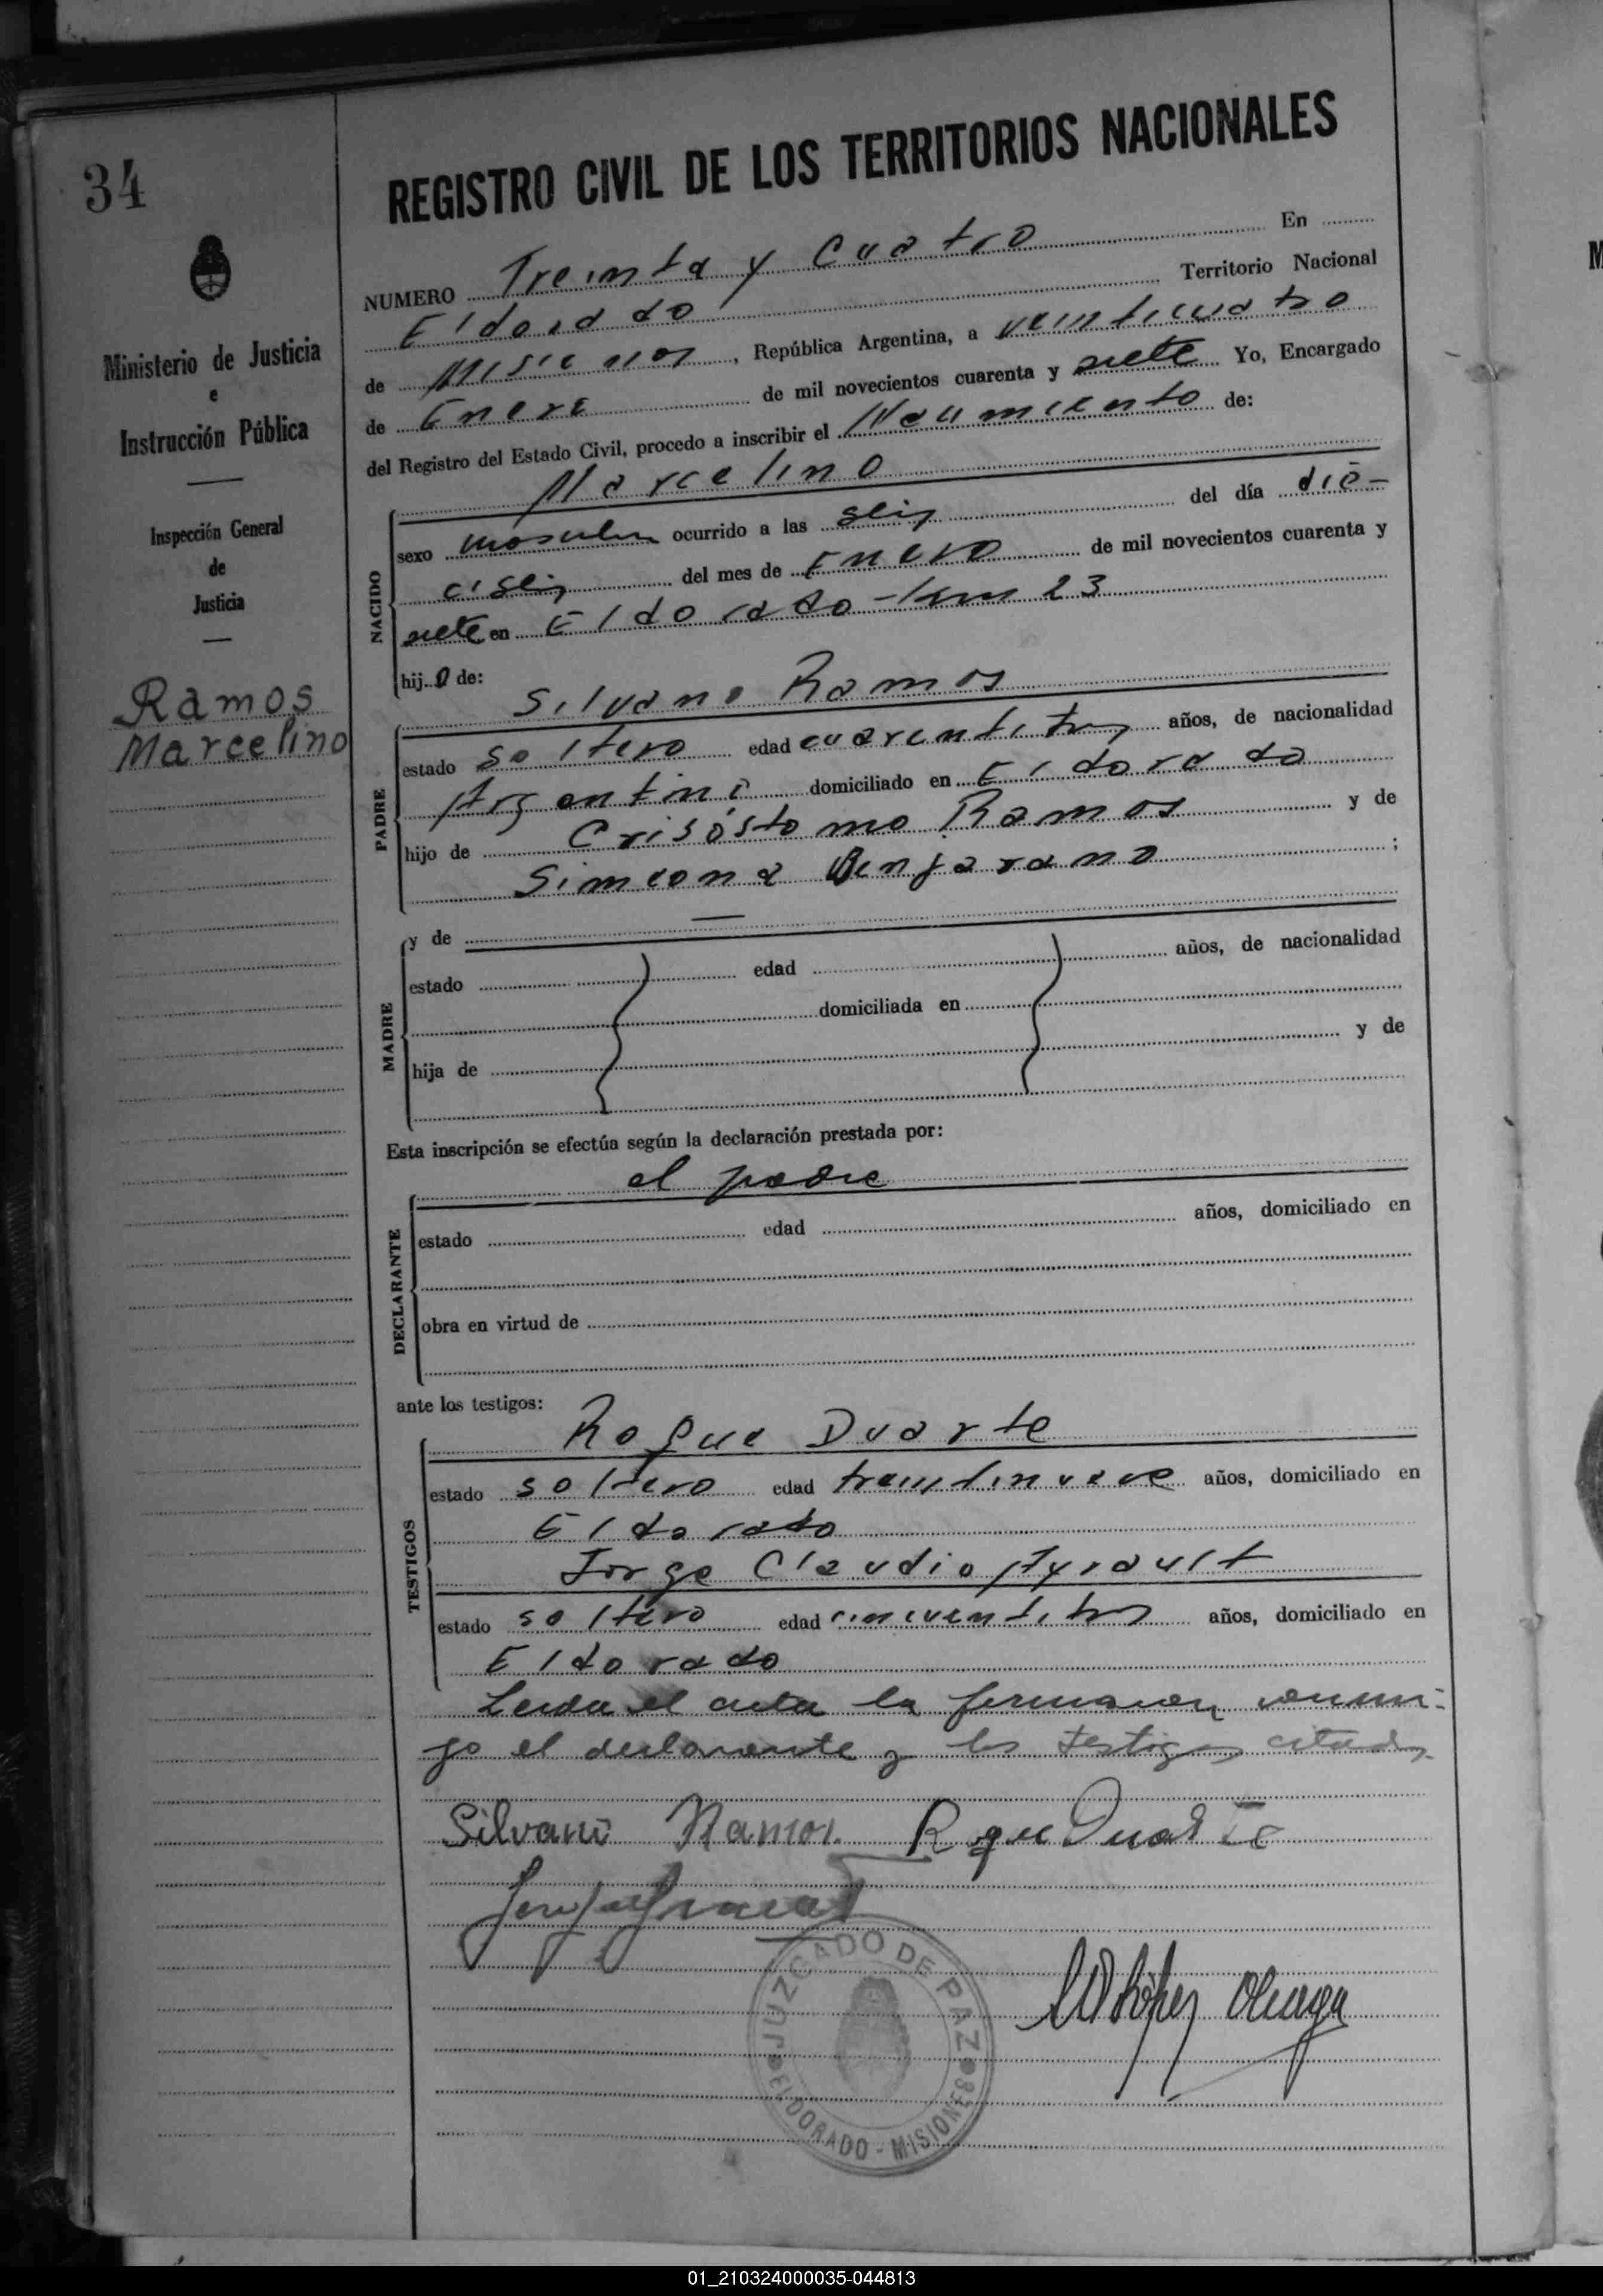 34
Ministerio de Justicia
e
Instrucción Pública
Inspección General
de
Justicia
Ramos
Marcelino
REGISTRO CIVIL DE LOS TERRITORIOS NACIONALES
NUMERO Treinta y Cuatro En
Eldorado Territorio Nacional
de Misiones, República Argentina, a veinticuatro
de Enero de mil novecientos cuarenta y siete Yo, Encargado
del Registro del Estado Civil, procedo a inscribir el Nacimiento de:
Marcelino
NACIDO
sexo masculino ocurrido a las seis del día die-
ciseis del mes de Enero de mil novecientos cuarenta y
siete en Eldorado - km 23
hijo de:
Silvano Ramos
PADRE
estado soltero edad cuarentitres años, de nacionalidad
Argentino domiciliado en Eldorado
hijo de Crisóstomo Ramos y de
Simeona Benjarano ;
MADRE
y de —
estado edad años, de nacionalidad
domiciliada en
hija de y de
Esta inscripción se efectúa según la declaración prestada por:
el padre
DECLARANTE
estado edad años, domiciliado en
obra en virtud de
ante los testigos:
Roque Duarte
TESTIGOS
estado soltero edad treintinueve años, domiciliado en
Eldorado
Jorge Claudio Ayrault
estado soltero edad cincuentitres años, domiciliado en
Eldorado
Leida el acta la firmaron conmi-
go el declarante y los testigos citados
Silvano Ramos. Roque Duarte
JUZGADO DE PAZ
ELDORADO - MISIONES
01_210324000035-044813